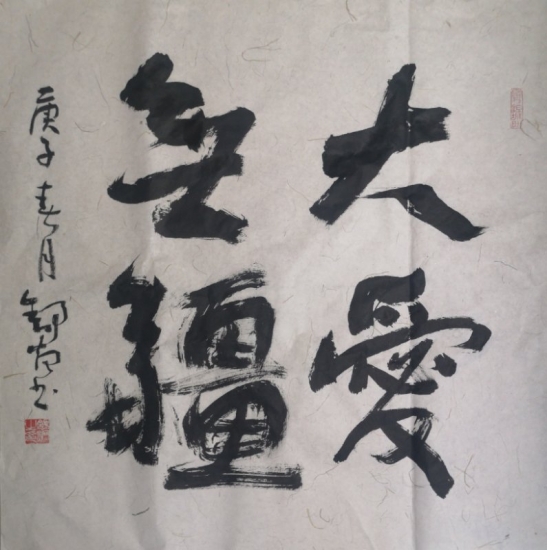 大愛
無疆
庚子春月